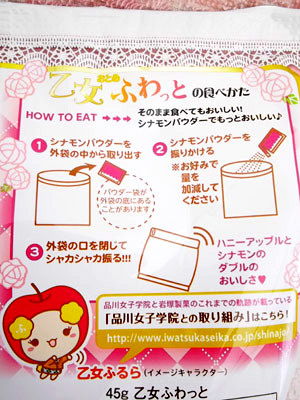 おとめ
乙女ふわっとの食べかた
HOW TO EAT
そのまま食べてもおいしい!
シナモンパウダーでもっとおいしい♪
1 シナモンパウダーを
外袋の中から取り出す
パウダー袋が
外袋の底にある
ことがあります
2 シナモンパウダーを
振りかける
※お好みで
量を
加減して
ください
3 外袋の口を閉じて
シャカシャカ振る!!!
ハニーアップルと
シナモンの
ダブルの
おいしさ♥
品川女子学院と岩塚製菓のこれまでの軌跡が載っている
「品川女子学院との取り組み」はこちら!
http://www.iwatsukaseika.co.jp/shinajo
ふ
乙女ふるら(イメージキャラクター)
45g 乙女ふわっと